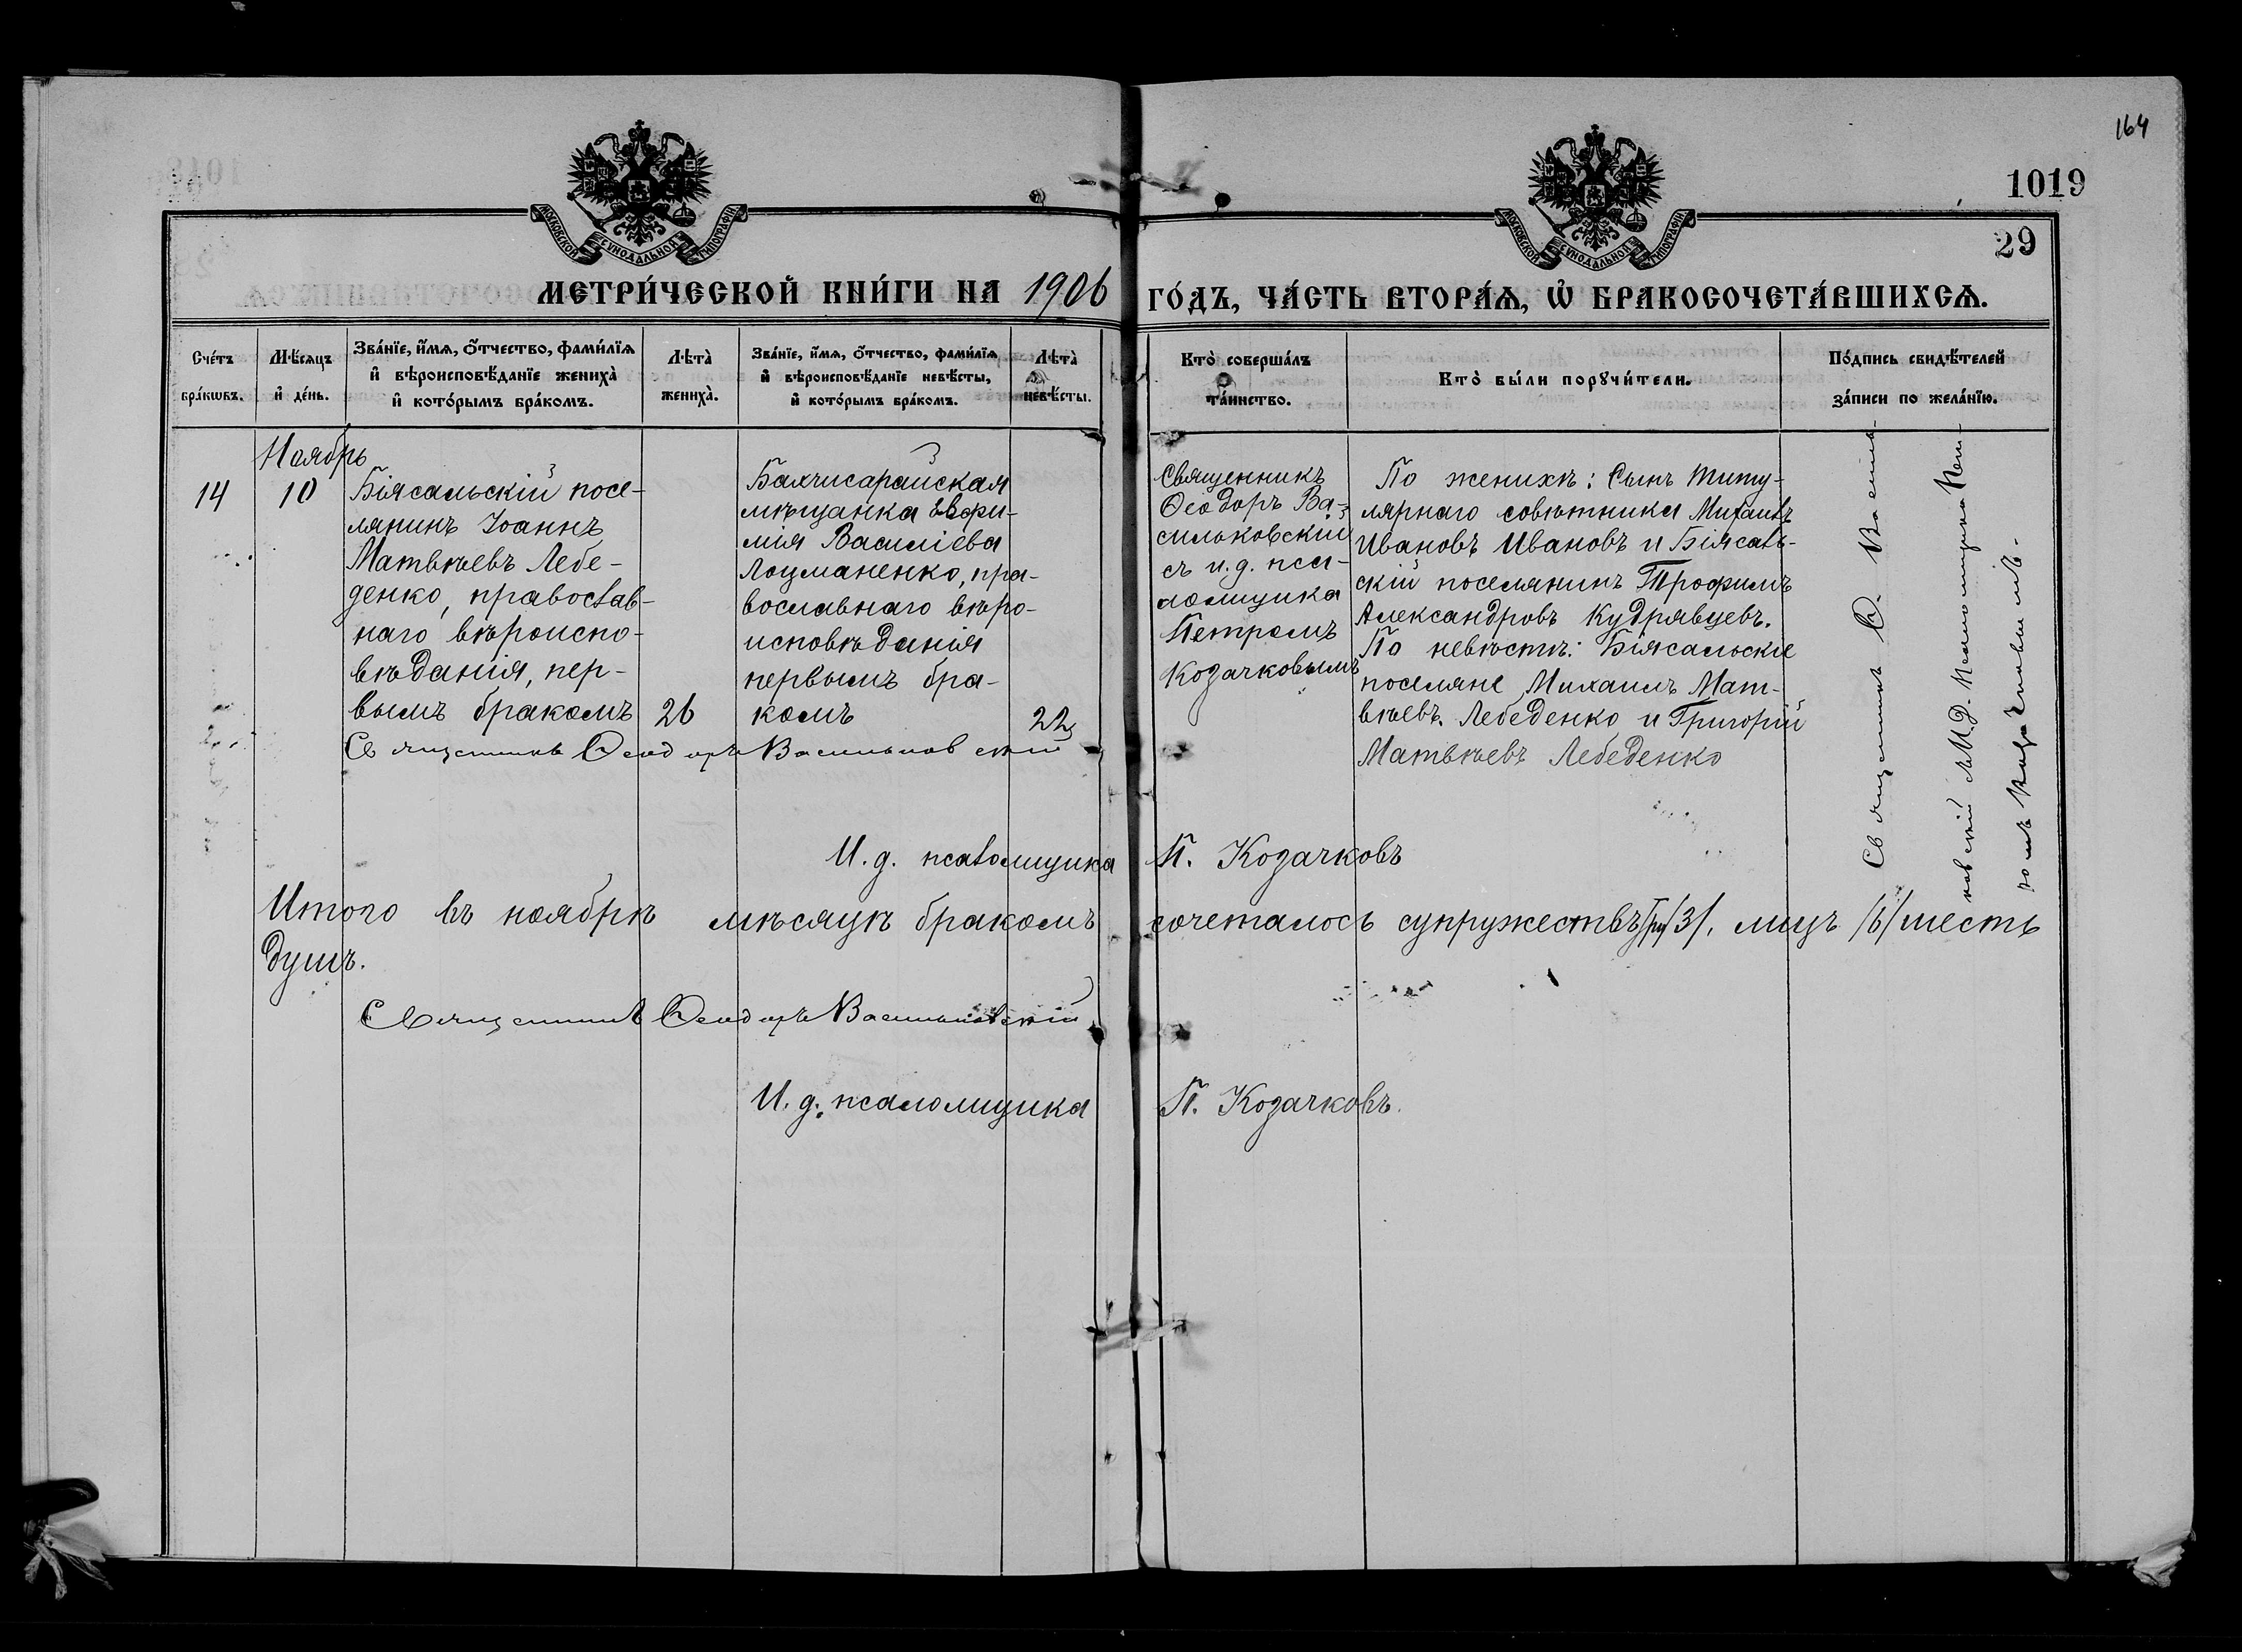 164
1019
29
МОСКОВСКОЙ СѴНОДАЛЬНОЙ ТИПОГРАФІИ
МОСКОВСКОЙ СѴНОДАЛЬНОЙ ТИПОГРАФІИ
МЕТРИ́ЧЕСКОЙ КНИ́ГИ НА 1906 ГО́ДЪ, ЧА́СТЬ ВТОРА́Ѧ, Ѡ҆ БРАКОСОЧЕТА́ВШИХСѦ.
Сче́тъ
бра́кѡвъ.
Мѣ́сяцъ
и҆ де́нь.
Зва́нїе, и҆́мѧ, ѻ҆́тчество, фами́лїѧ
и҆ вѣроисповѣ́данїе жениха̀
и҆ кото́рымъ бра́комъ.
Лѣта̀
жениха̀.
Зва́нїе, и҆́мѧ, ѻ҆́тчество, фами́лїѧ
и҆ вѣроисповѣ́данїе невѣ́сты,
и҆ кото́рымъ бра́комъ.
Лѣта̀
невѣ́сты.
Кто̀ соверша́лъ
та́инство.
Кто̀ бы́ли порꙋчи́тели.
По́дпись свидѣ́телей
за́писи по жела́нїю.
Ноябрь
14
10
Біясальскій посе-
лянинъ Іоаннъ
Матвѣевъ Лебе-
денко, православ-
наго вѣроиспо-
вѣданія, пер-
вымъ бракомъ
26
Бахчисарайская
мѣщанка Евфи-
мія Василіева
Лоцманенко, пра-
вославнаго вѣро-
исповѣданія
первымъ бра-
комъ
22
Священникъ
Ѳеодоръ Ва-
сильковскій
съ и. д. пса-
ломщика
Петромъ
Козачковымъ
По женихѣ: Сынъ титу-
лярнаго совѣтника Михаилъ
Ивановъ Ивановъ и Біясаль-
скій поселянинъ Трофимъ
Александровъ Кудрявцевъ.
По невѣстѣ: Біясальскіе
поселяне Михаилъ Мат-
вѣевъ Лебеденко и Григорій
Матвѣевъ Лебеденко
Священникъ Ѳ. Василь-
ковскій и И. Д. Псаломщика Пет-
ромъ Козачковымъ.
Священникъ Ѳеодоръ Васильковскій
И. д. псаломщика П. Козачковъ
Итого въ ноябрѣ мѣсяцѣ бракомъ сочеталось супружествъ /три/ 3/, лицъ /6/ шесть
душъ.
Священникъ Ѳеодоръ Васильковскій
И. д. псаломщика П. Козачковъ.